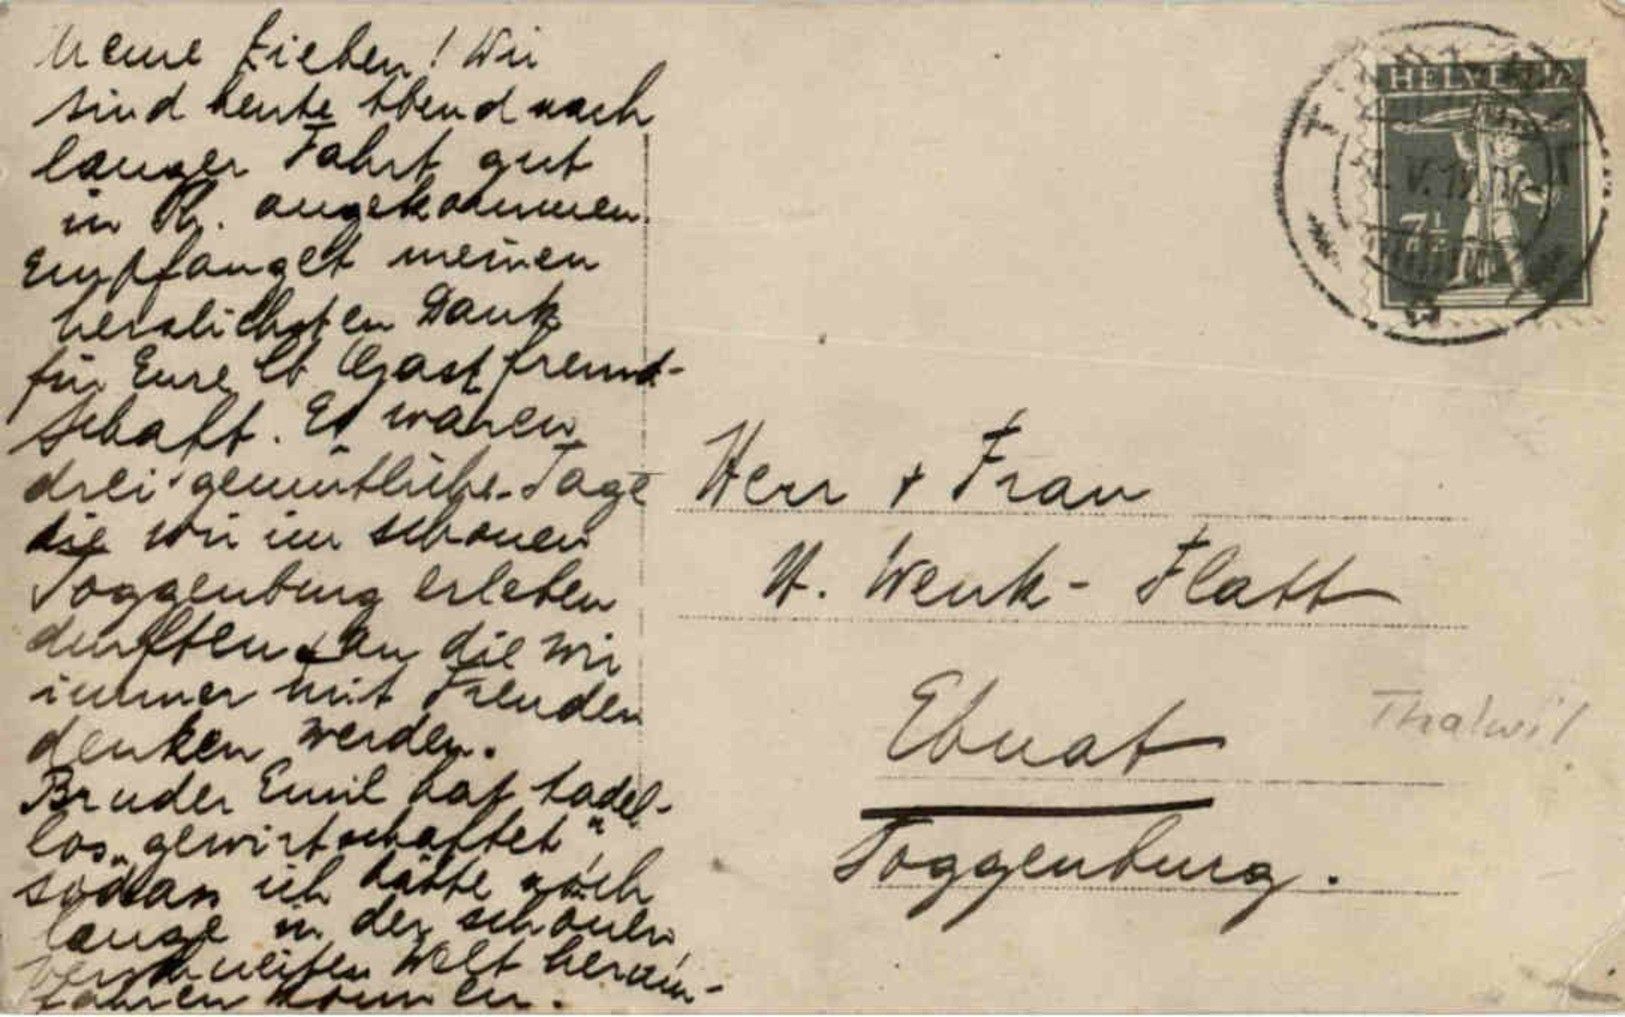 Meine Lieben! Wir
sind heute Abend nach
langer Fahrt gut
in Rh. angekommen.
Empfanget meinen
herzlichsten Dank
für Eure lb Gastfreund-
schaft. Es waren
drei gemütliche Tage
die wir im schönen
Toggenburg erleben
durften & an die wir
immer mit Freuden
denken werden.
Bruder Emil hat tadel-
los „gewirtschaftet“,
sodass ich hätte noch
lange in der schönen
verschneiten Welt herum-
fahren können.
HELVETIA
7½
Herr & Frau
H. Wenk-Flatt
Ebnat
Toggenburg.
Thalwil